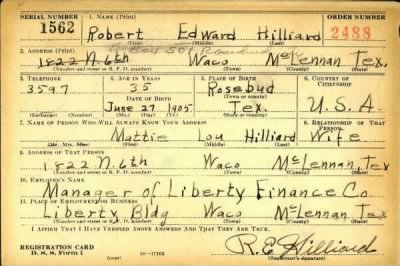 SERIAL NUMBER 1. NAME (Print) ORDER NUMBER
1562 Robert Edward Hilliard 2488
(First) (Middle) (Last)
2. ADDRESS (Print)
1822 N. 6th Waco McLennan Tex.
(Number and street or R. F. D. number) (Town) (County) (State)
3. TELEPHONE 4. AGE IN YEARS 5. PLACE OF BIRTH 6. COUNTRY OF CITIZENSHIP
3597 35 Rosebud
DATE OF BIRTH (Town or county)
June 27 1905 Tex. U.S.A.
(Mo.) (Day) (Yr.) (State or country)
7. NAME OF PERSON WHO WILL ALWAYS KNOW YOUR ADDRESS 8. RELATIONSHIP OF THAT PERSON
Mattie Lou Hilliard Wife
(First) (Middle) (Last)
9. ADDRESS OF THAT PERSON
1822 N. 6th Waco McLennan, Tex
(Number and street or R. F. D. number) (Town) (County) (State)
10. EMPLOYER'S NAME
Manager of Liberty Finance Co.
11. PLACE OF EMPLOYMENT OR BUSINESS
Liberty Bldg Waco McLennan Tex
(Number and street or R. F. D. number) (Town) (County) (State)
I AFFIRM THAT I HAVE VERIFIED ABOVE ANSWERS AND THAT THEY ARE TRUE.
REGISTRATION CARD
D. S. S. FORM 1 R.E. Hilliard